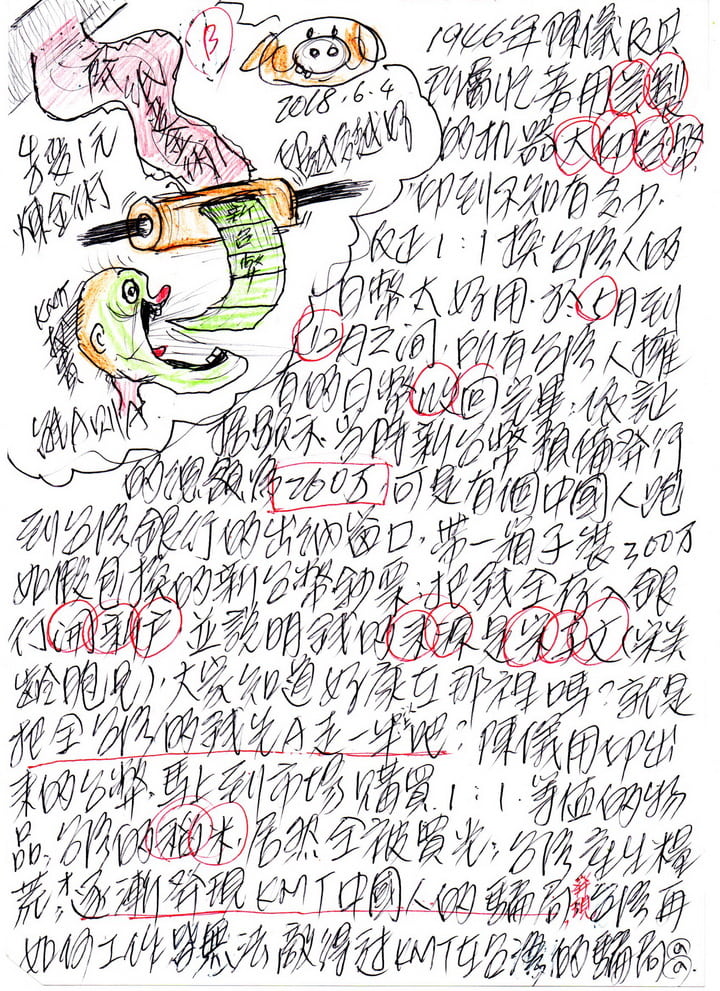 B
2018.6.4
印越多越好
煉金術
新台幣
KMT
1946年陳儀及其
到台灣
的机器大印台幣
印到不知有多少.
1:1換台灣人的
日幣太好用.於5月到
12月之間,所有台灣人擁
有的日幣收回完畢.依記
當時新台幣預備發行
的總額為260万可是有個中國人跑
到台灣銀行的出納窗口,帶一箱子裝200万
如假包換的新台幣鈔票,把錢全存入銀
行開新戶並說明錢的來源是宋子文(宋美
齡胞兄),大家知道好康在那裡嗎?就是
把全台灣的錢先A走一半吧.陳儀用印出
來的台幣,馬上到市場購買1:1.等值的物
品,台灣的稻米,居然全被買光;台灣產生糧
荒,才逐漸發現KMT中國人的騙局,台灣再
如何工作皆無法敵得過KMT在台灣的騙局